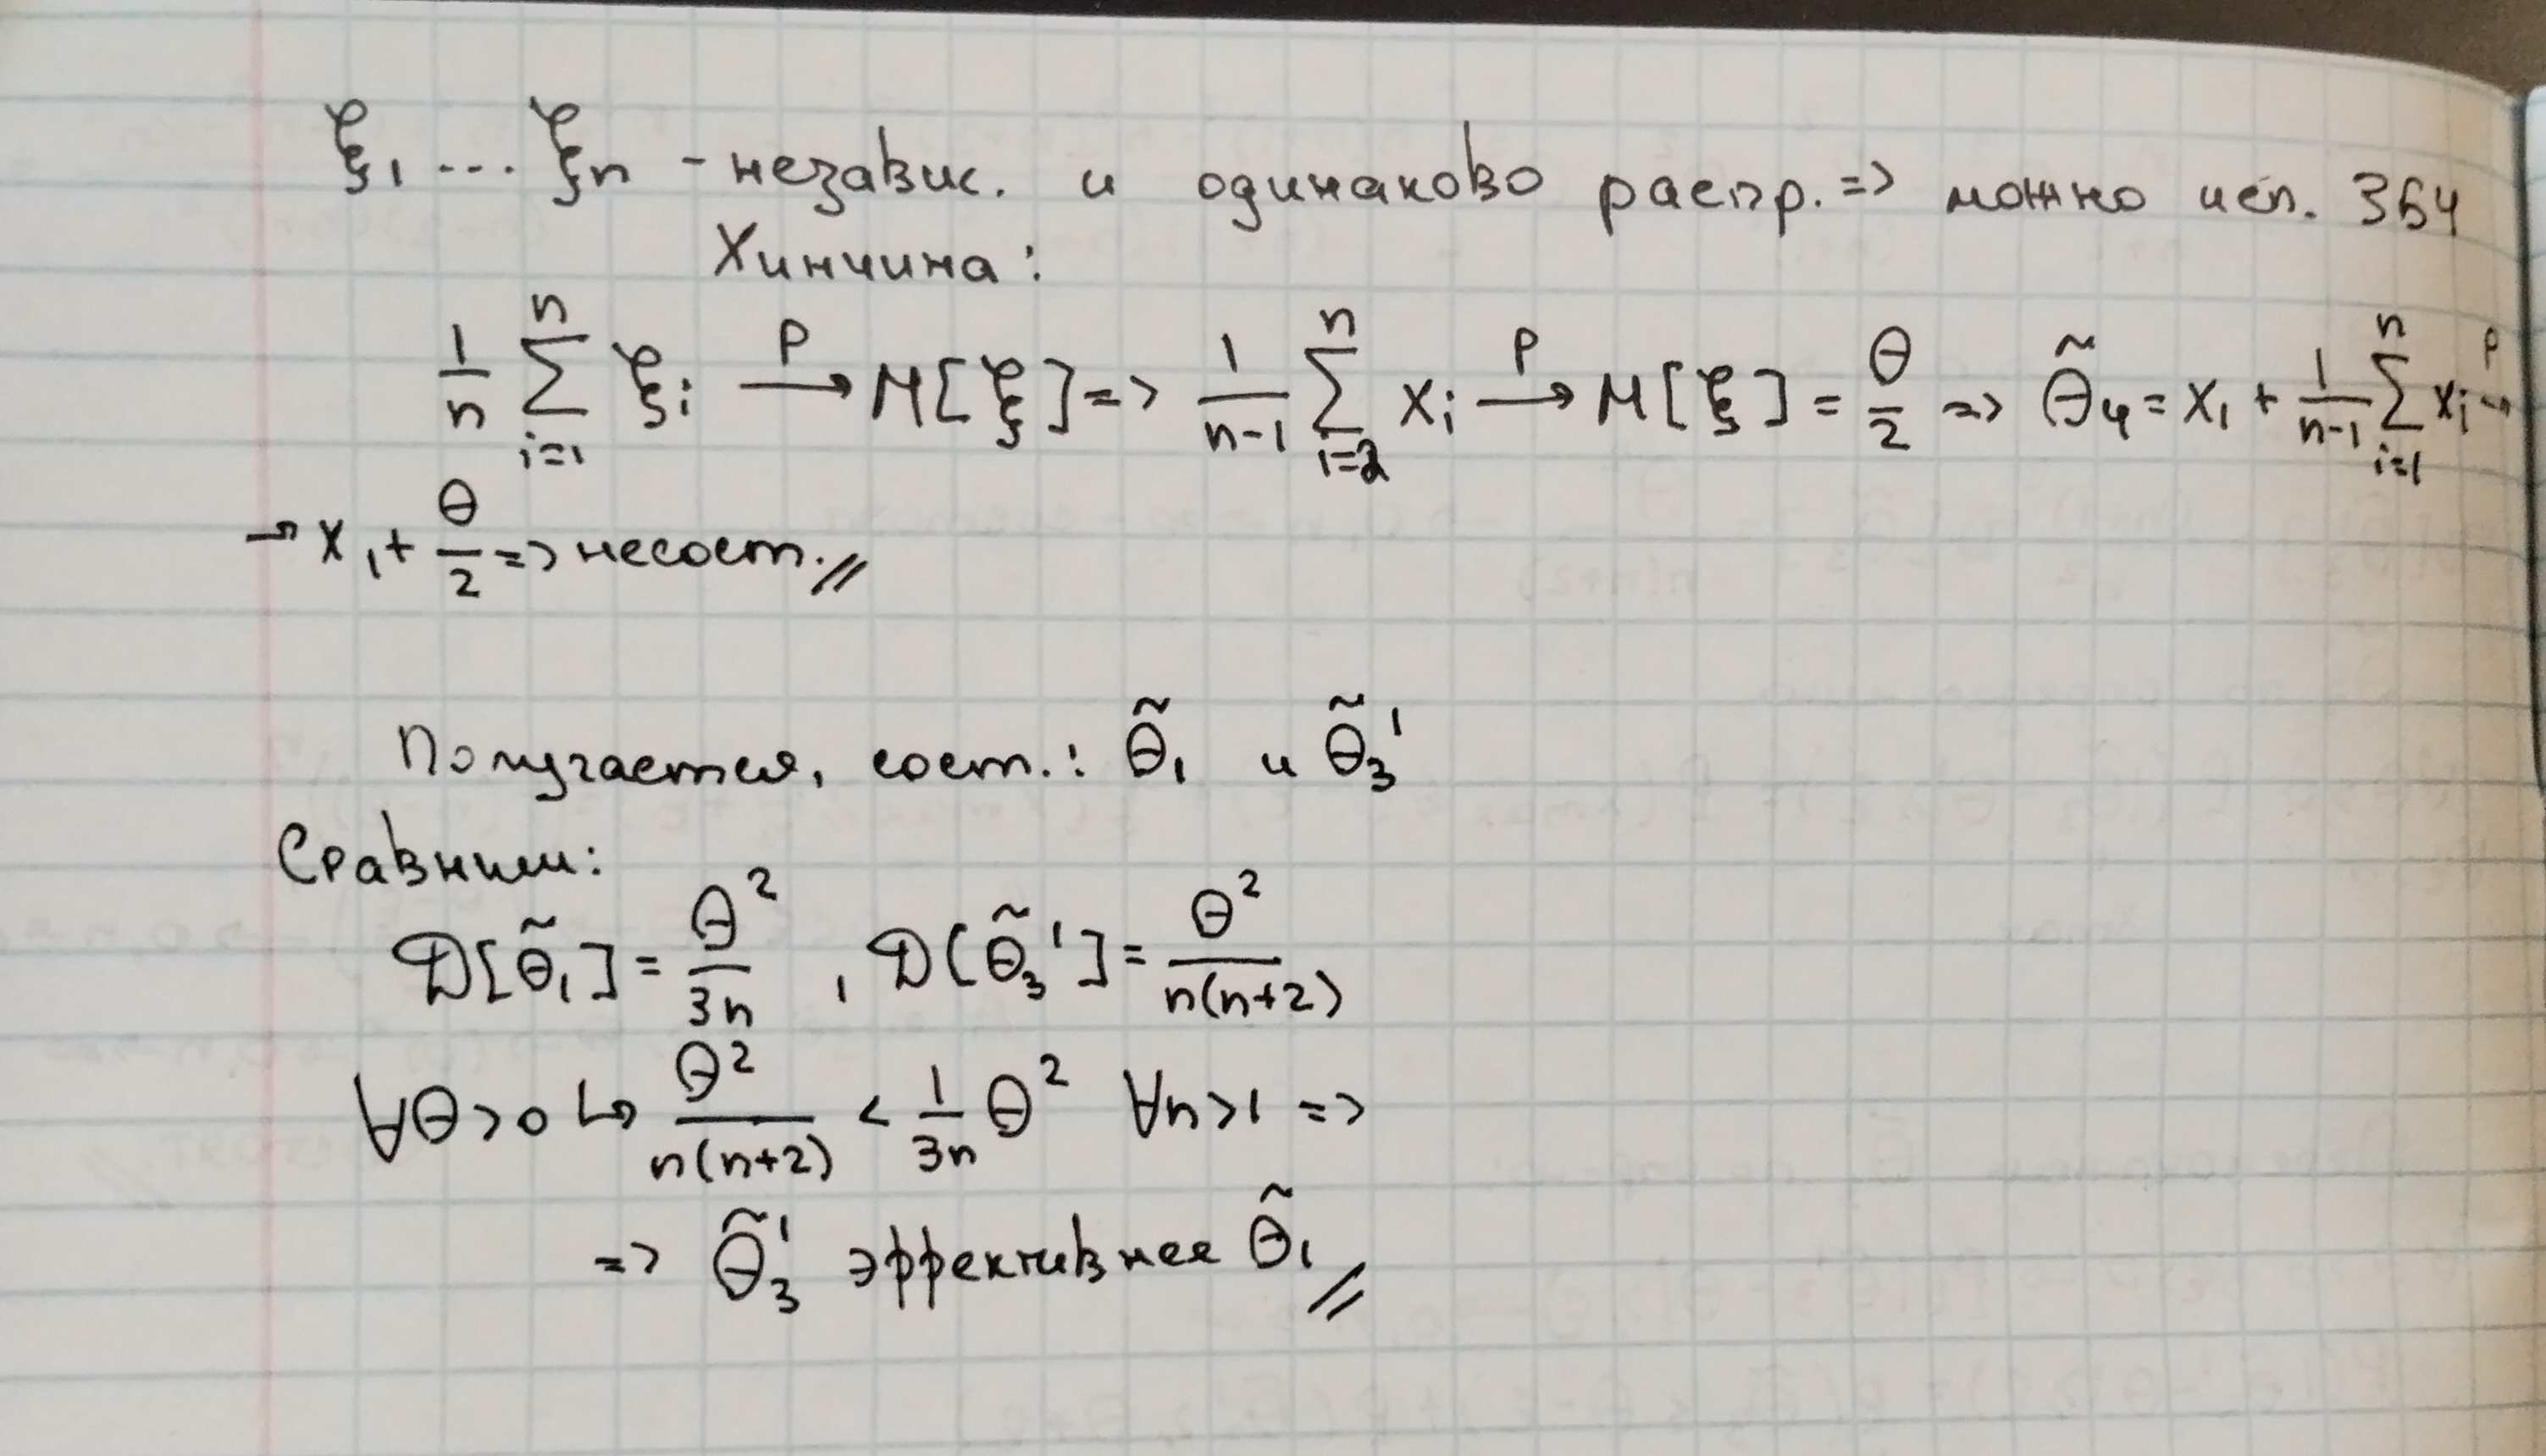 ξ₁ ... ξn - независ. и одинаково распр. => можно исп. ЗБЧ
Хинчина:
1/n ∑_{i=1}^{n} ξi →^P M[ξ] => 1/(n-1) ∑_{i=2}^{n} xi →^P M[ξ] = θ/2 => θ̃₄ = x₁ + 1/(n-1) ∑_{i=1}^{n} xi →^P
→ x₁ + θ/2 => несост.//
Получается, сост.: θ̃₁ и θ̃₃'
Сравним:
D[θ̃₁] = θ²/3n , D[θ̃₃'] = θ²/n(n+2)
∀θ>0 ↳ θ²/n(n+2) < 1/3n θ² ∀n>1 =>
=> θ̃₃' эффективнее θ̃₁ //